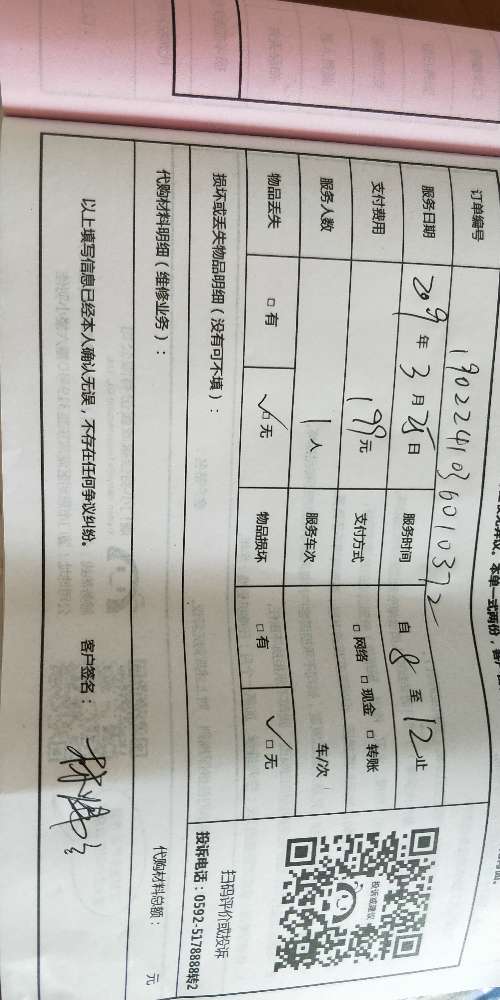 订单编号 190224103601037２
服务日期 2019年3月25日 服务时间 自8至12止
支付费用 199元 支付方式 □网络 □现金 □转账
服务人数 1人 服务车次 车/次
物品丢失 □有 ✓□无 物品损坏 □有 ✓□无
损坏或丢失物品明细（没有可不填）：
代购材料明细（维修业务）： 代购材料总额： 元
以上填写信息已经本人确认无误，不存在任何争议纠纷。 客户签名：
投诉或建议
扫码评价或投诉
投诉电话：0592-5178888转2